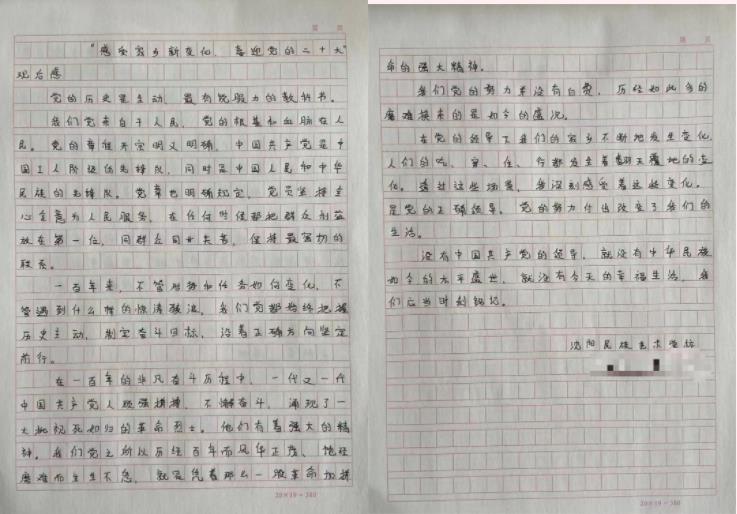 第 页
"感受家乡新变化,喜迎党的二十大"
观后感
党的历史是生动、最有说服力的教科书。
我们党来自于人民,党的根基和血脉在人
民。党的章程开宗明义明确,中国共产党是中
国工人阶级的先锋队,同时是中国人民和中华
民族的先锋队。党章也明确规定,党员坚持全
心全意为人民服务,在任何时候都把群众利益
放在第一位,同群众同甘共苦,保持最密切的
联系。
一百年来,不管形势和任务如何变化,不
管遇到什么样的惊涛骇浪,我们党都始终把握
历史主动,制定奋斗目标,沿着正确方向坚定
前行。
在一百年的非凡奋斗历程中,一代又一代
中国共产党人顽强拼搏,不懈奋斗,涌现了一
大批视死如归的革命烈士。他们有着强大的精
神。我们党之所以历经百年而风华正茂、饱经
磨难而生生不息,就是凭着那么一股革命加拼
20×19=380
第 页
命的强大精神。
我们党的努力并没有白费,历经如此多的
磨难换来的是如今的盛况。
在党的领导下我们的家乡不断地发生变化,
人们的吃、穿、住、行都发生着翻天覆地的变
化。透过这些场景,我深刻感受着这些变化。
是党的正确领导,党的努力付出改变了我们的
生活。
没有中国共产党的领导,就没有中华民族
如今的太平盛世,就没有今天的幸福生活,我
们应当时刻铭记。
沈阳民族艺术学校
20×19=380